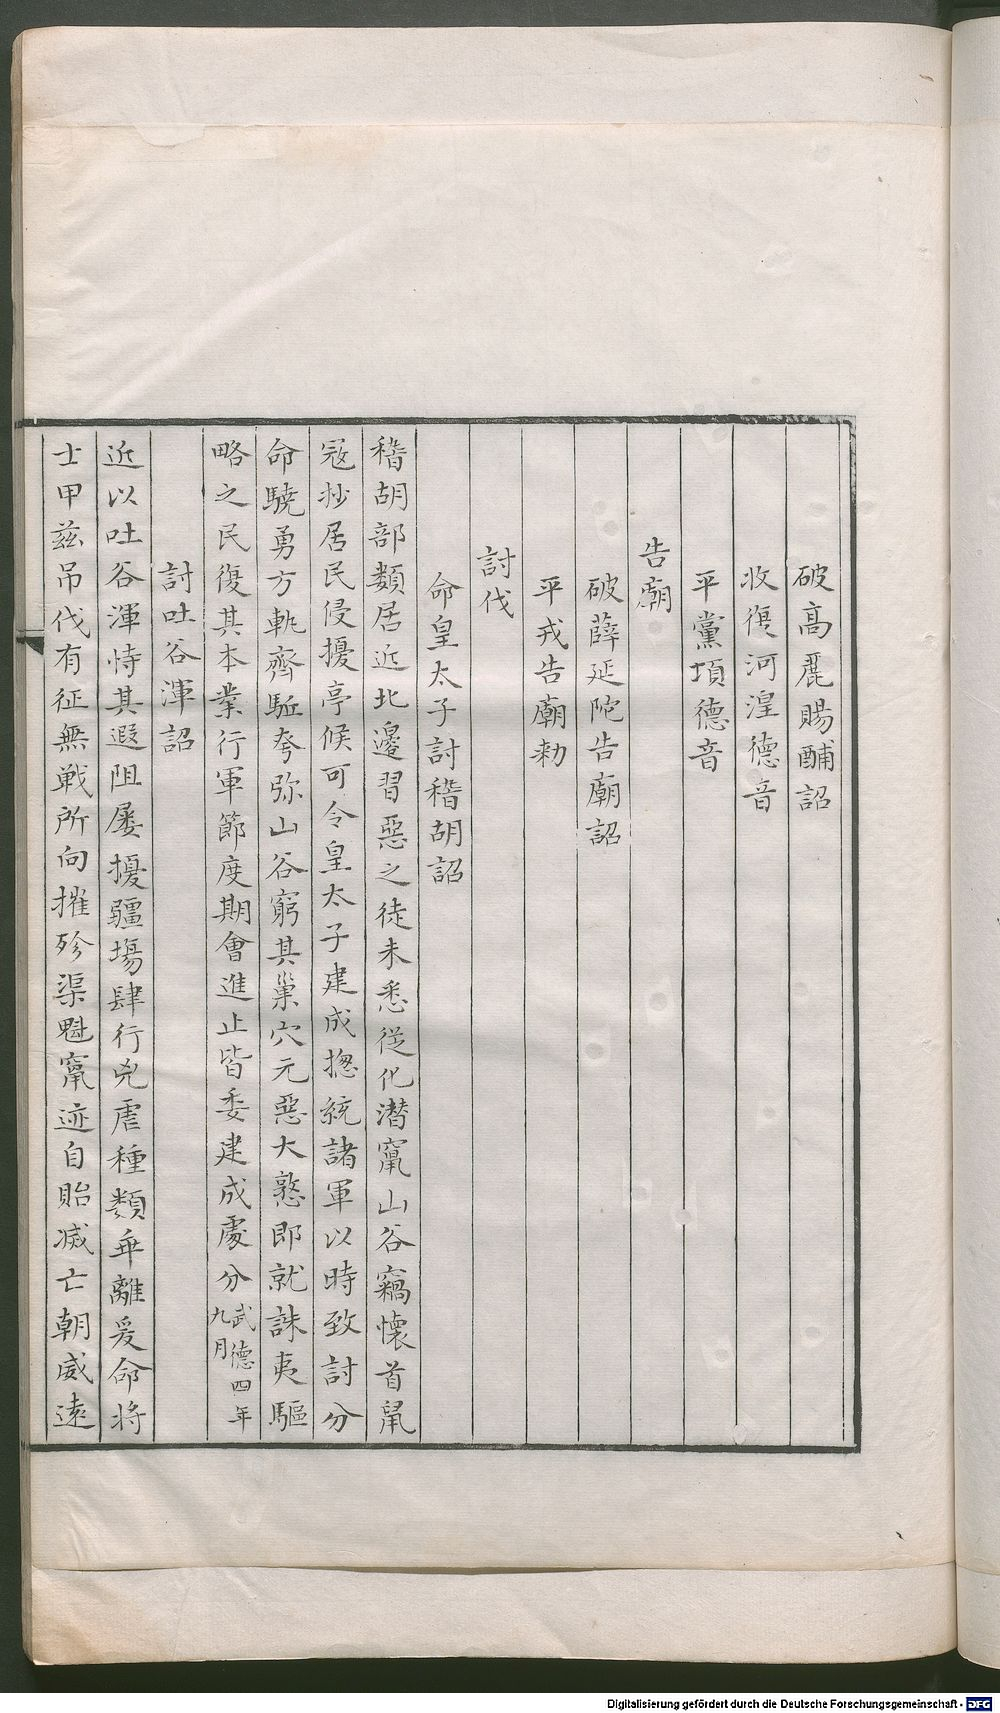 破高麗賜酺詔
收復河湟德音
平黨項德音
告廟
破薛延陀告廟詔
平戎告廟勑
討伐
命皇太子討稽胡詔
稽胡部類居近北邊習惡之徒未悉從化潛竄山谷竊懷首鼠
寇抄居民侵擾亭候可令皇太子建成揔統諸軍以時致討分
命驍勇方軌齊駈夸弥山谷窮其巢穴元惡大憝即就誅夷驅
略之民復其本業行軍節度期會進止皆委建成處分武德四年九月
討吐谷渾詔
近以吐谷渾恃其遐阻屡擾疆場肆行兇虐種類乖離爰命将
士甲兹吊伐有征無戰所向摧殄渠魁竄迹自貽滅亡朝威遠
Digitalisierung gefördert durch die Deutsche Forschungsgemeinschaft - DFG